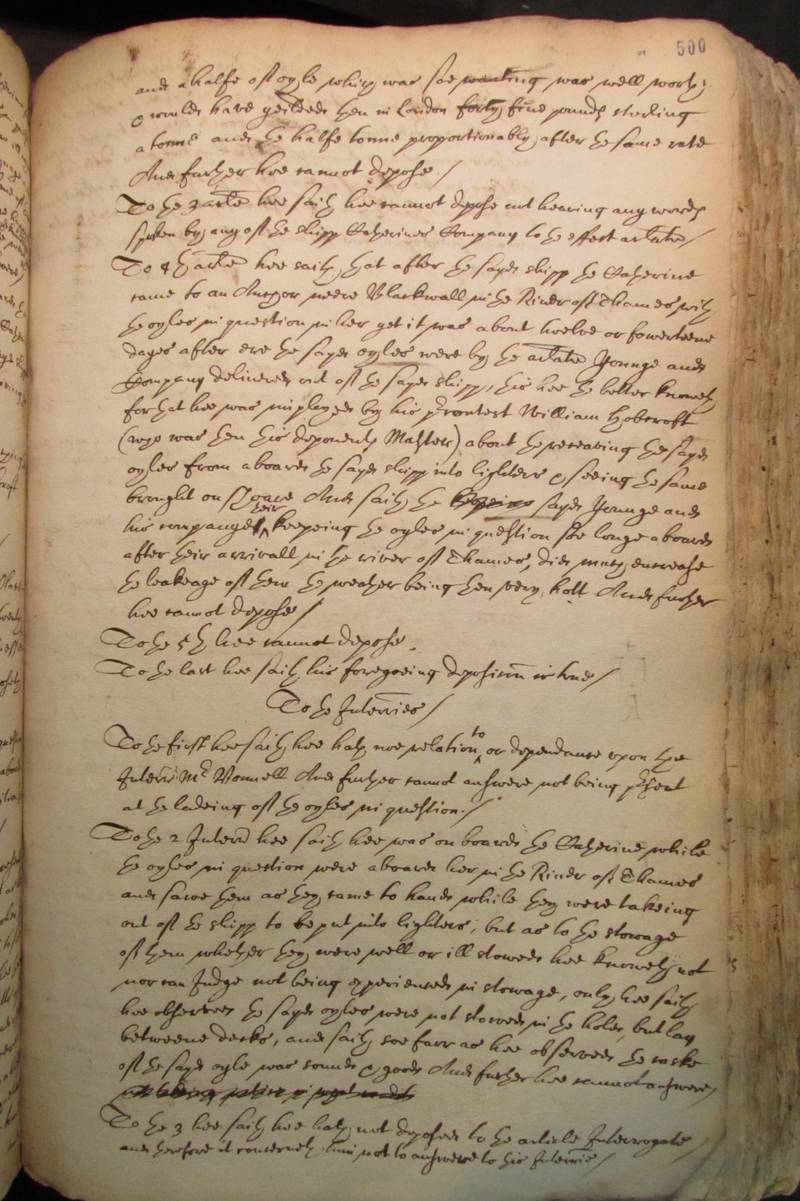 500
and a halfe of oyle which was soe wanting was well worth
& would have yeilded then in London forty five pounds sterling
a tonne and the halfe tonne proportionably after the same rate
And further hee cannot depose./
To the 3 arlte hee saith hee cannot depose not hearing any words
spoken by any of the shipp Catherines Company to the effect arlate/
To 4th arlte hee saith that after the sayd shipp the Catherine
came to an Anchor neere Blackwall in the River of Thames with
the oyles in question in her yet it was about twelve or fowerteene
dayes after ere the sayd oyles were by the arlate Younge and
Company delivered out of the sayd shipp, this hee the better knoweth
for that hee was imployed by his precontest William Hobcroft
(who was then this deponents Master) about the receaving the sayd
oyles from aboard the sayd shipp into lighters & seeing the same
brought on shoare And saith the sayd Younge and
his companyes their keepeing the oyles in question soe longe aboard
after their arrivall in the river of Thames, did much encrease
the leakeage of them the weather being then very hott And further
hee cannot depose/
To the 5th hee cannot depose.
To the last hee saith his foregoeing deposition is true/
To the Interries/
To the first hee saith hee hath noe relation to or dependance upon the
Interrt Mr Vonnell And further cannot answere not being present
at the ladeing of the oyles in question./
To the 2 Interrie hee saith hee was on board the Catherine while
the oyles in question were aboard her in the River of Thames
and sawe them as they came to hand while they were takeing
out of the shipp to be put into lighters, but as to the stowage
of them whether they were well or ill stowed hee knoweth not
nor can Judge not being experienced in stowage, only hee saith
hee observed the sayd oyles were not stowed in the hold, but lay
betweene decks, and saith soe farr as hee observed the caske
of the sayd oyle was sound & good And further hee cannot answere/
To the 3 hee saith hee hath not deposed to the article Interrogate
and therefore it concerneth him not to answere to this Interrie/